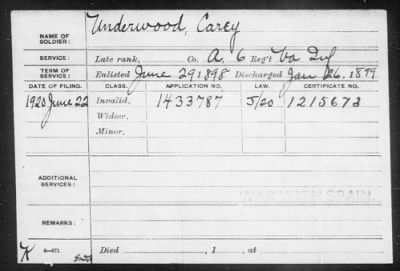 NAME OF SOLDIER: Underwood, Carey
SERVICE: Late rank, Co. A. 6 Reg't Va Inf
TERM OF SERVICE: Enlisted June 29 1898 Discharged Jan 26. 1899
DATE OF FILING. CLASS. APPLICATION NO. LAW. CERTIFICATE NO.
1920 June 22 Invalid, 1433787 J/20 1215673
Widow,
Minor,
ADDITIONAL SERVICES:
WAR WITH SPAIN.
REMARKS:
K 6-471 Died , 1 , at